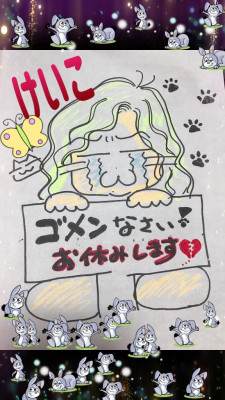 けいこ
ゴメンなさい!
お休みします💔